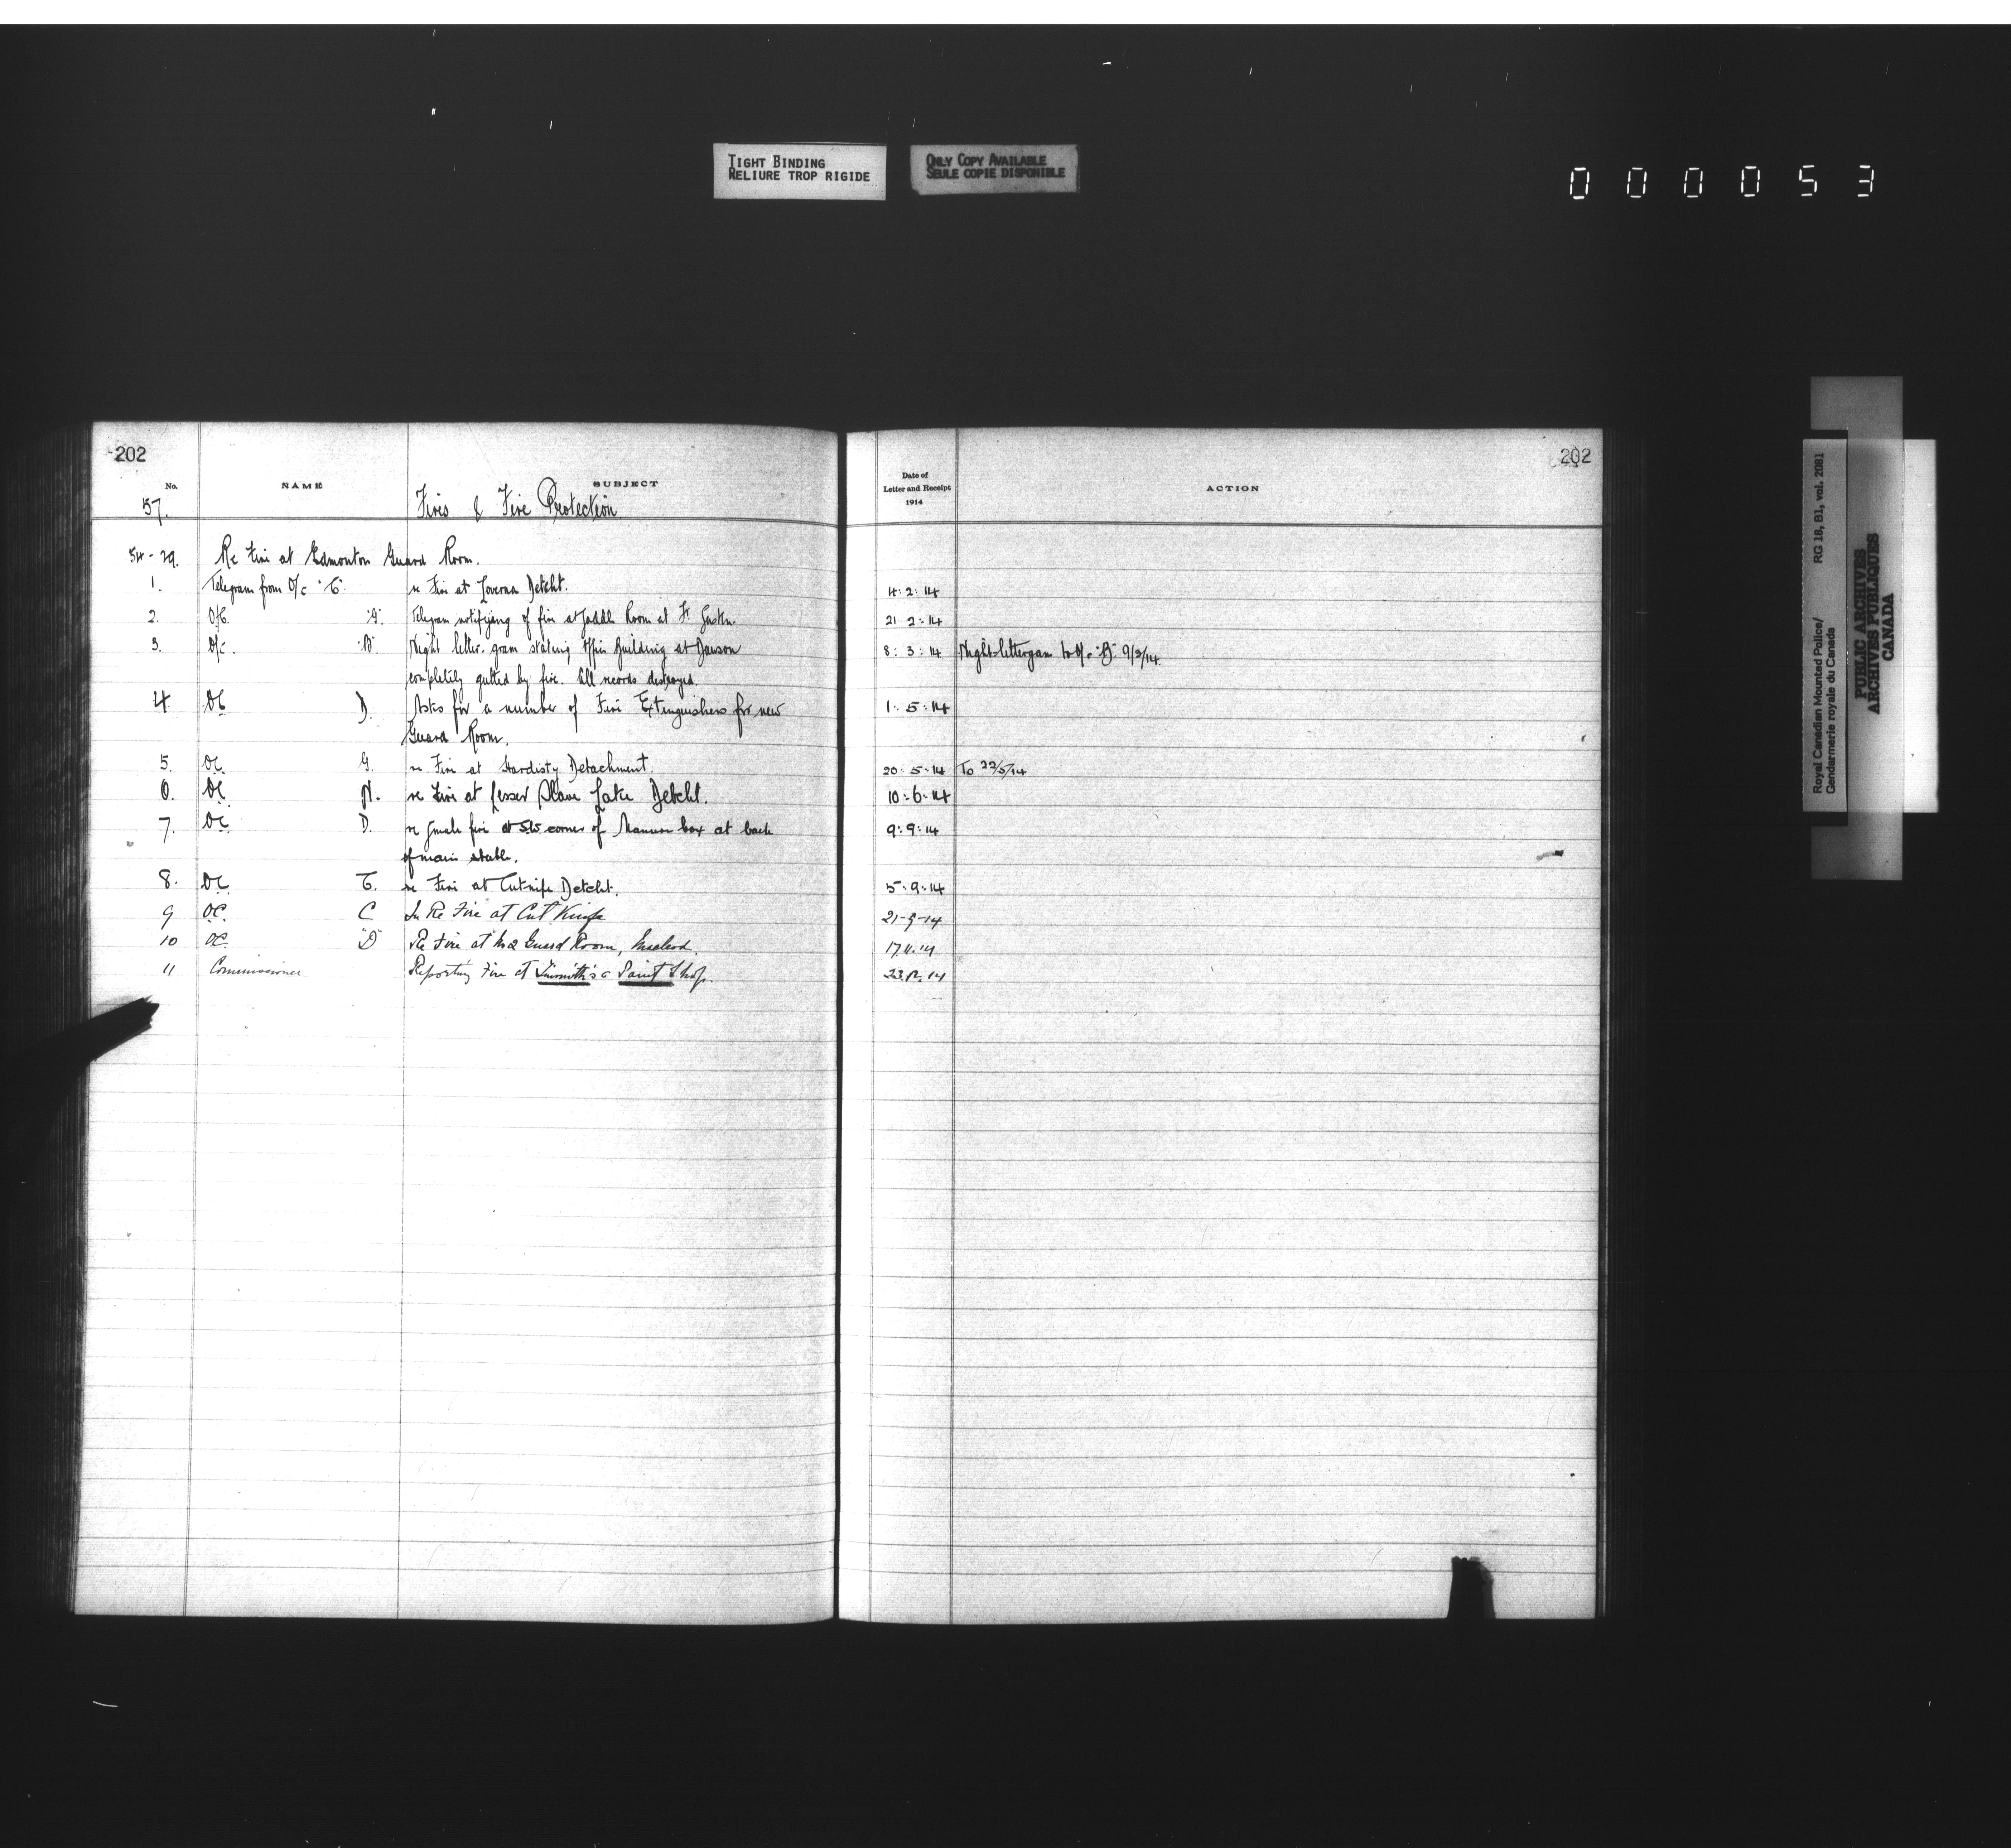 TIGHT BINDING
RELIURE TROP RIGIDE
ONLY COPY AVAILABLE
SEULE COPIE DISPONIBLE
000053
202
No. NAME SUBJECT
57. Fires & Fire Protection
54-29. Re Fire at Edmonton Guard Room.
1. Telegram from O/c "C" re Fire at Loverna Detcht.
2. O/C. "G". Telegram notifying of fire at Saddle Room at Ft. Sask'n.
3. O/c. "B" Night letter-gram stating Office Building at Dawson
completely gutted by fire. All records destroyed.
4. OC D. Asks for a number of Fire Extinguishers for new
Guard Room.
5. OC. G. re Fire at Hardisty Detachment.
6. OC N. re Fire at Lesser Slave Lake Detcht.
7. OC D. re small fire at S.W. corner of Manure box at back
of main stable.
8. OC. C. re Fire at Cutknife Detcht.
9 OC. C In Re Fire at Cut Knife
10 OC. "D" Re Fire at No 2 Guard Room, Macleod.
11 Commissioner Reporting Fire at Tinsmith's & Paint Shop.
202
Date of
Letter and Receipt
1914
ACTION
4:2:14
21:2:14
8:3:14 Night-lettergram to O/c "B" 9/3/14.
1:5:14
20:5:14 To 22/5/14
10:6:14
9:9:14
5:9:14
21-9-14
17.11.14
23.12.14
Royal Canadian Mounted Police/ RG 18, B1, vol. 2081
Gendarmerie royale du Canada
PUBLIC ARCHIVES
ARCHIVES PUBLIQUES
CANADA